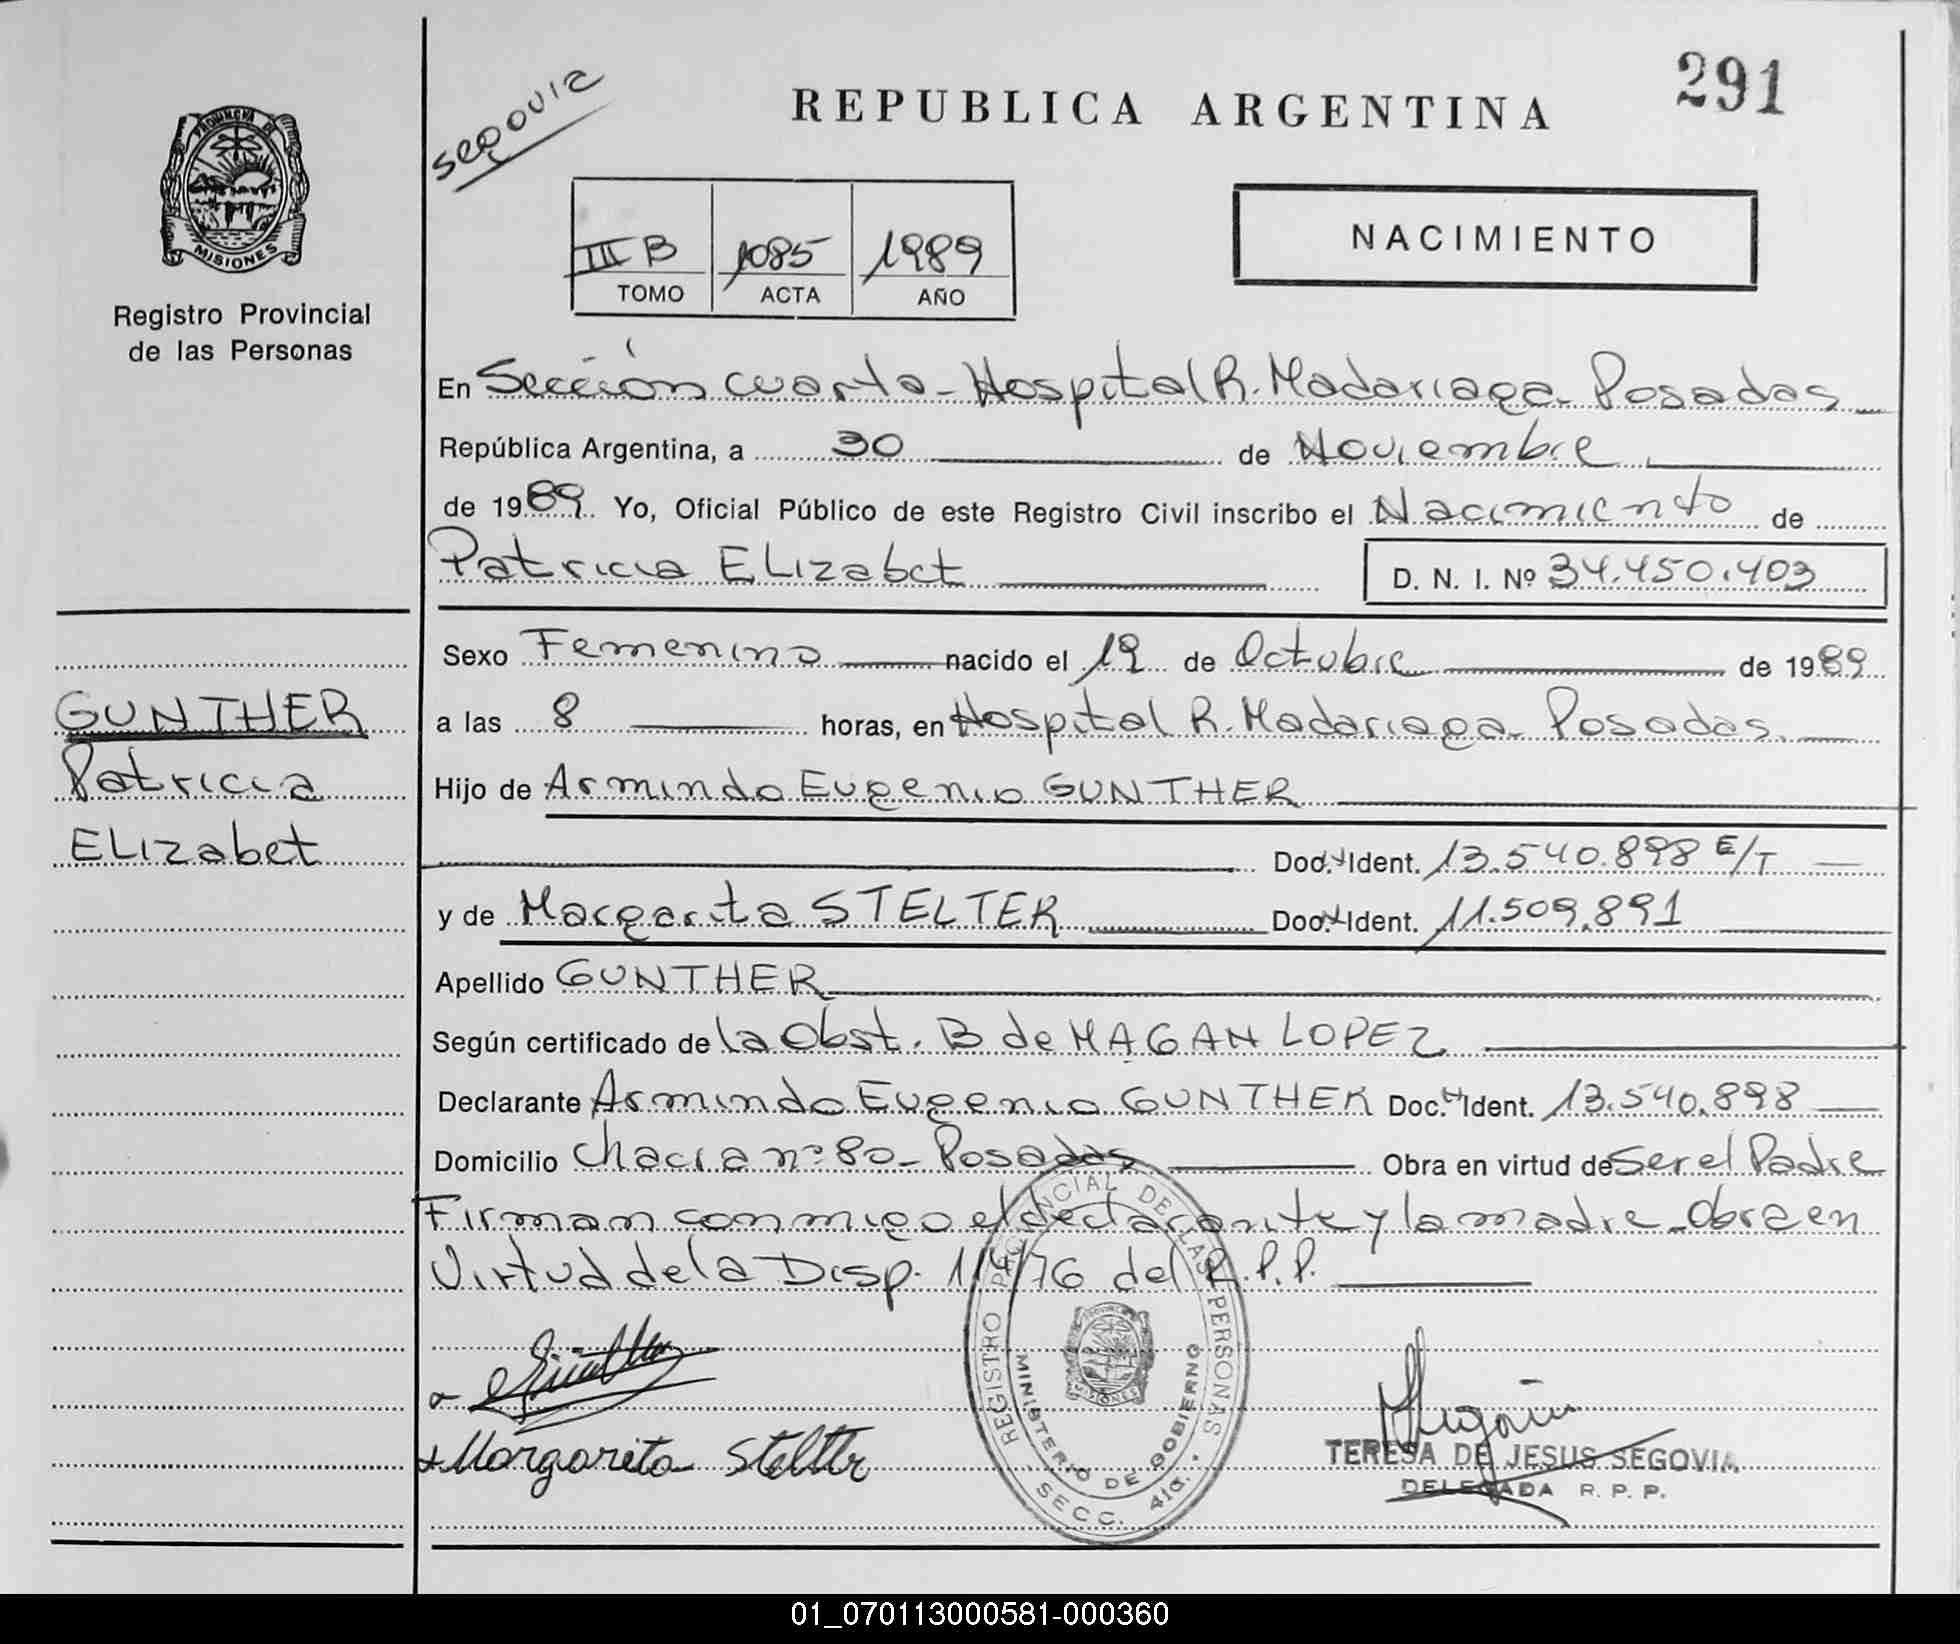 291
segovia
REPUBLICA ARGENTINA
PROVINCIA DE
MISIONES
Registro Provincial
de las Personas
III B 1085 1989
TOMO ACTA AÑO
NACIMIENTO
En Sección cuarta - Hospital R. Madariaga - Posadas
República Argentina, a 30 de Noviembre
de 1989. Yo, Oficial Público de este Registro Civil inscribo el Nacimiento de
Patricia ELizabet D. N. I. Nº 34.450.403
Sexo Femenino nacido el 19 de Octubre de 1989
a las 8 horas, en Hospital R. Madariaga - Posadas.
Hijo de Armindo Eugenio GUNTHER
Doc. Ident. 13.540.898 E/T
y de Margarita STELTER Doc. Ident. 11.509.891
Apellido GUNTHER
Según certificado de la Obst. B de MAGAN LOPEZ
Declarante Armindo Eugenio GUNTHER Doc. Ident. 13.540.898
Domicilio chacra nº 80 - Posadas Obra en virtud de Ser el Padre
Firman conmigo el declarante y la madre - Obra en
Virtud de la Disp. 114/76 del R.P.P.
GUNTHER
Patricia
ELizabet
Margarita Stelter
REGISTRO PROVINCIAL DE LAS PERSONAS
MINISTERIO DE GOBIERNO
SECC. 4ta.
PROVINCIA
MISIONES
TERESA DE JESUS SEGOVIA
DELEGADA R. P. P.
01_070113000581-000360